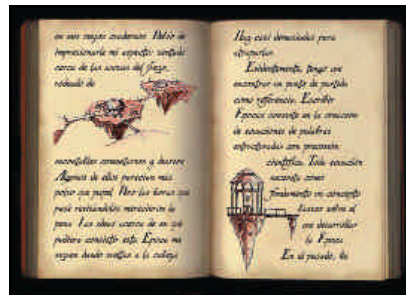 en mis viejos cuadernos. Debió de
impresionarle mi aspecto: sentado
cerca de las scorias del fuego,
rodeado de
incontables anotaciones y dusers
Algunos de ellos parecían más
polvo que papel. Pero las horas que
pasé revisándolos merecieron la
pena. Las ideas acerca de en qué
podría consistir esta Época me
siguen dando vueltas a la cabeza
Hay casi demasiadas para
atraparlas.
Evidentemente, tengo que
encontrar un punto de partida
como referencia. Escribir
Épocas consiste en la creación
de ecuaciones de palabras
estructuradas con precisión
científica. Toda ecuación
necesita como
fundamento un concepto
básico sobre el
que desarrollar
la Época
En el pasado, he